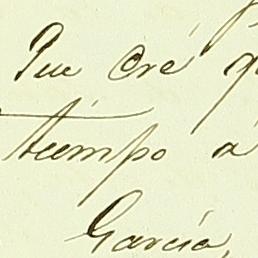 Que cré q
tiempo á
García,